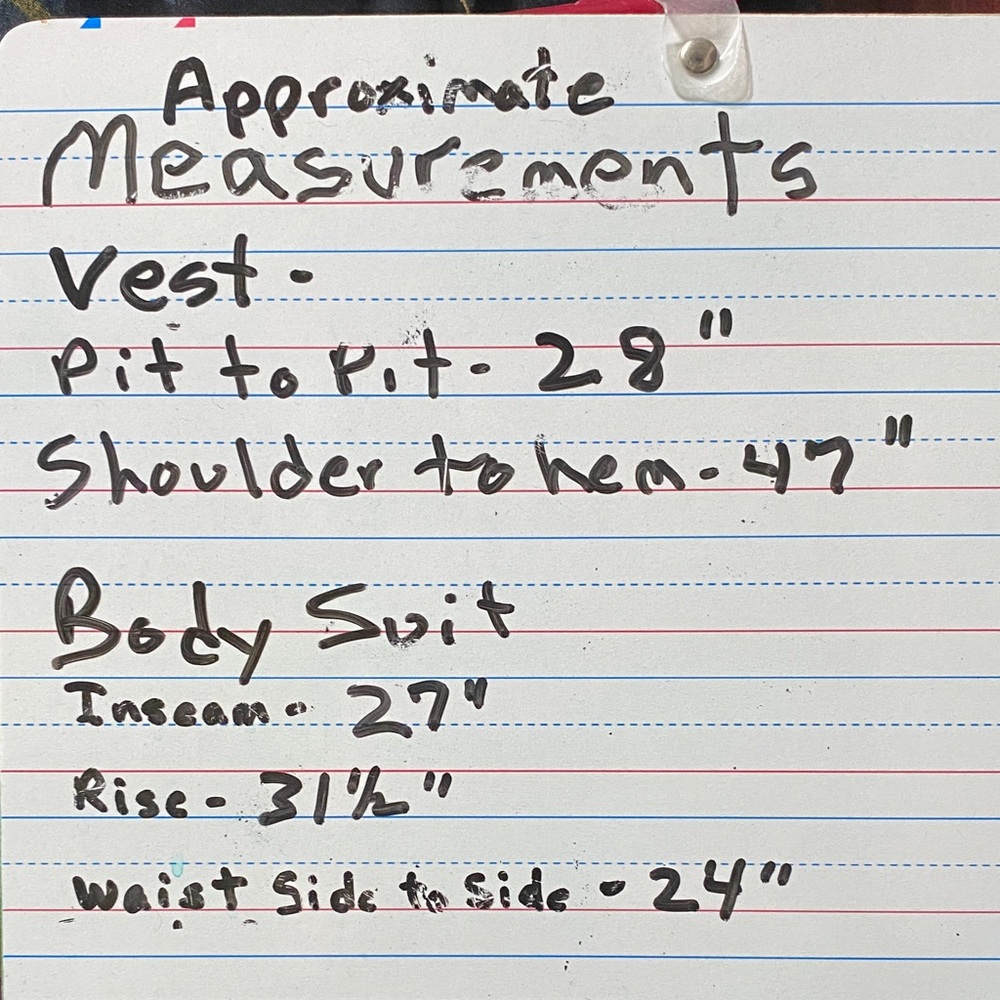 Approximate
Measurements
Vest -
Pit to Pit - 28"
Shoulder to hem - 47"
Body Suit
Inseam - 27"
Rise - 31 1/2"
Waist Side to Side - 24"